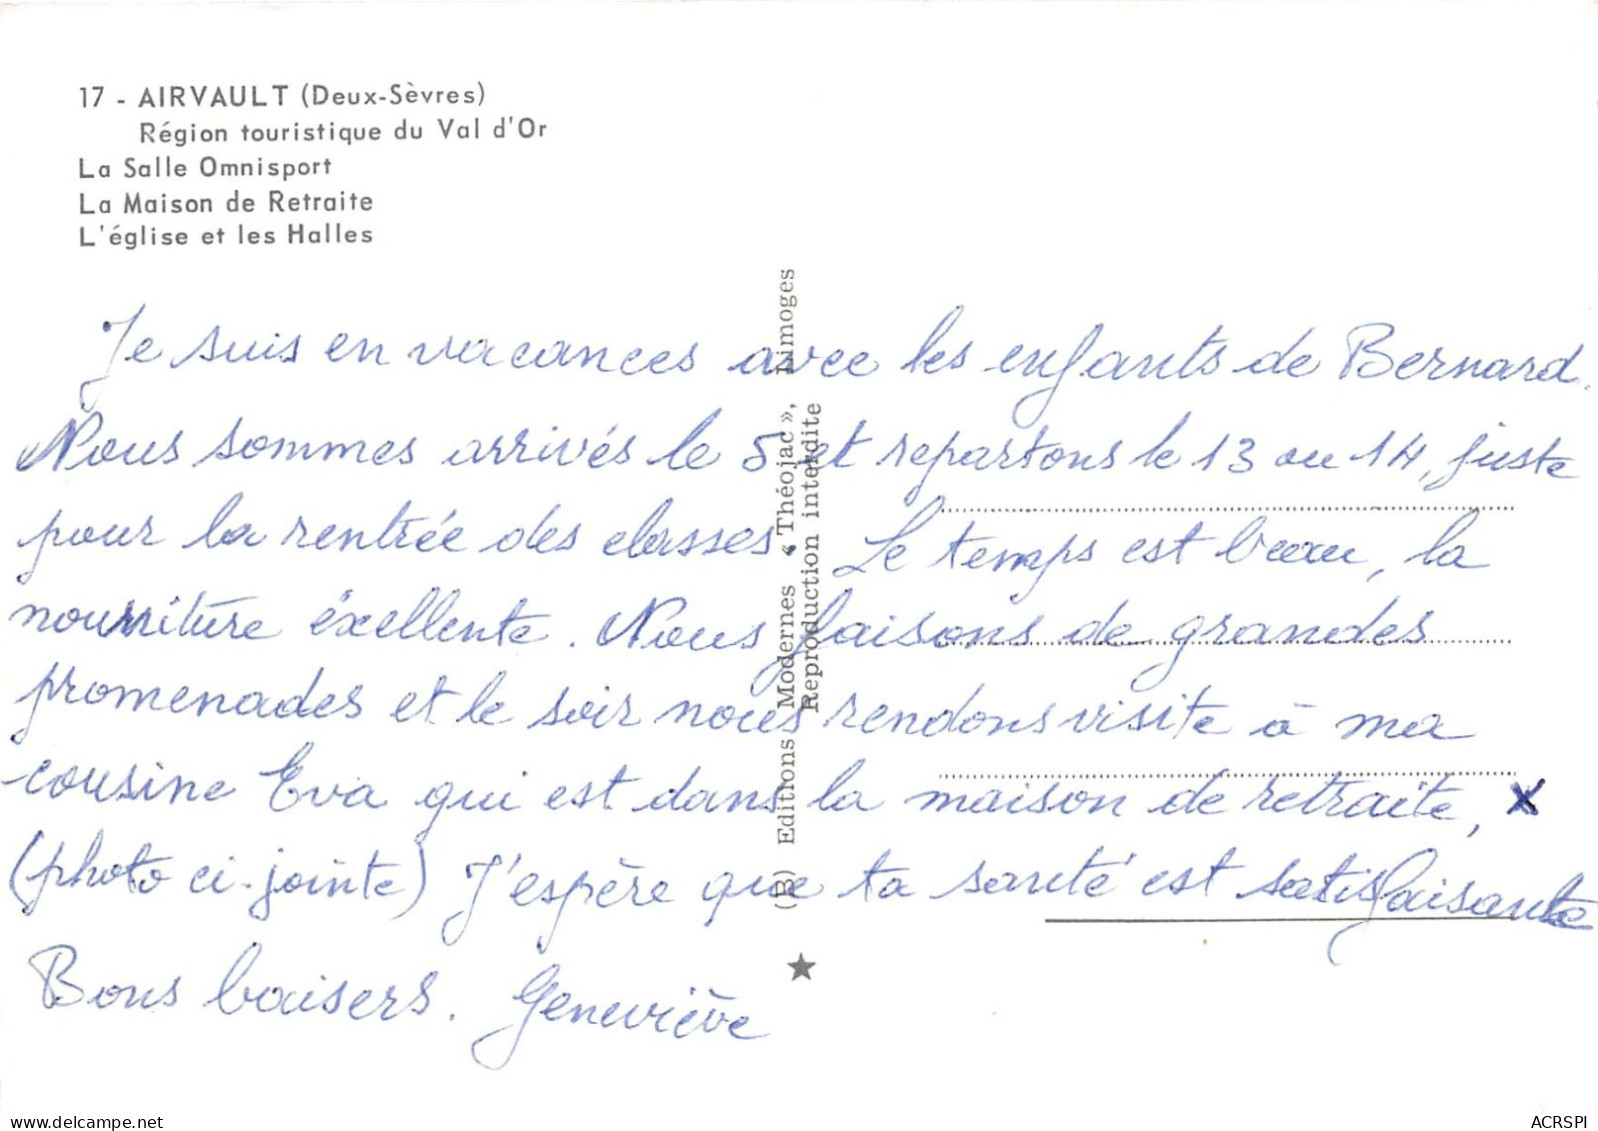 17 - AIRVAULT (Deux-Sèvres)
Région touristique du Val d'Or
La Salle Omnisport
La Maison de Retraite
L'église et les Halles
Je suis en vacances avec les enfants de Bernard.
Nous sommes arrivés le 5 et repartons le 13 ou 14, juste
pour la rentrée des classes. Le temps est beau, la
nourriture éxellente. Nous faisons de grandes
promenades et le soir nous rendons visite à ma
cousine Eva qui est dans la maison de retraite, x
(photo ci-jointe) J'espère que ta santé est satisfaisante
Bons baisers. Geneviève
(R) Editions Modernes « Théojac », Limoges
Reproduction interdite
delcampe.net
ACRSPI